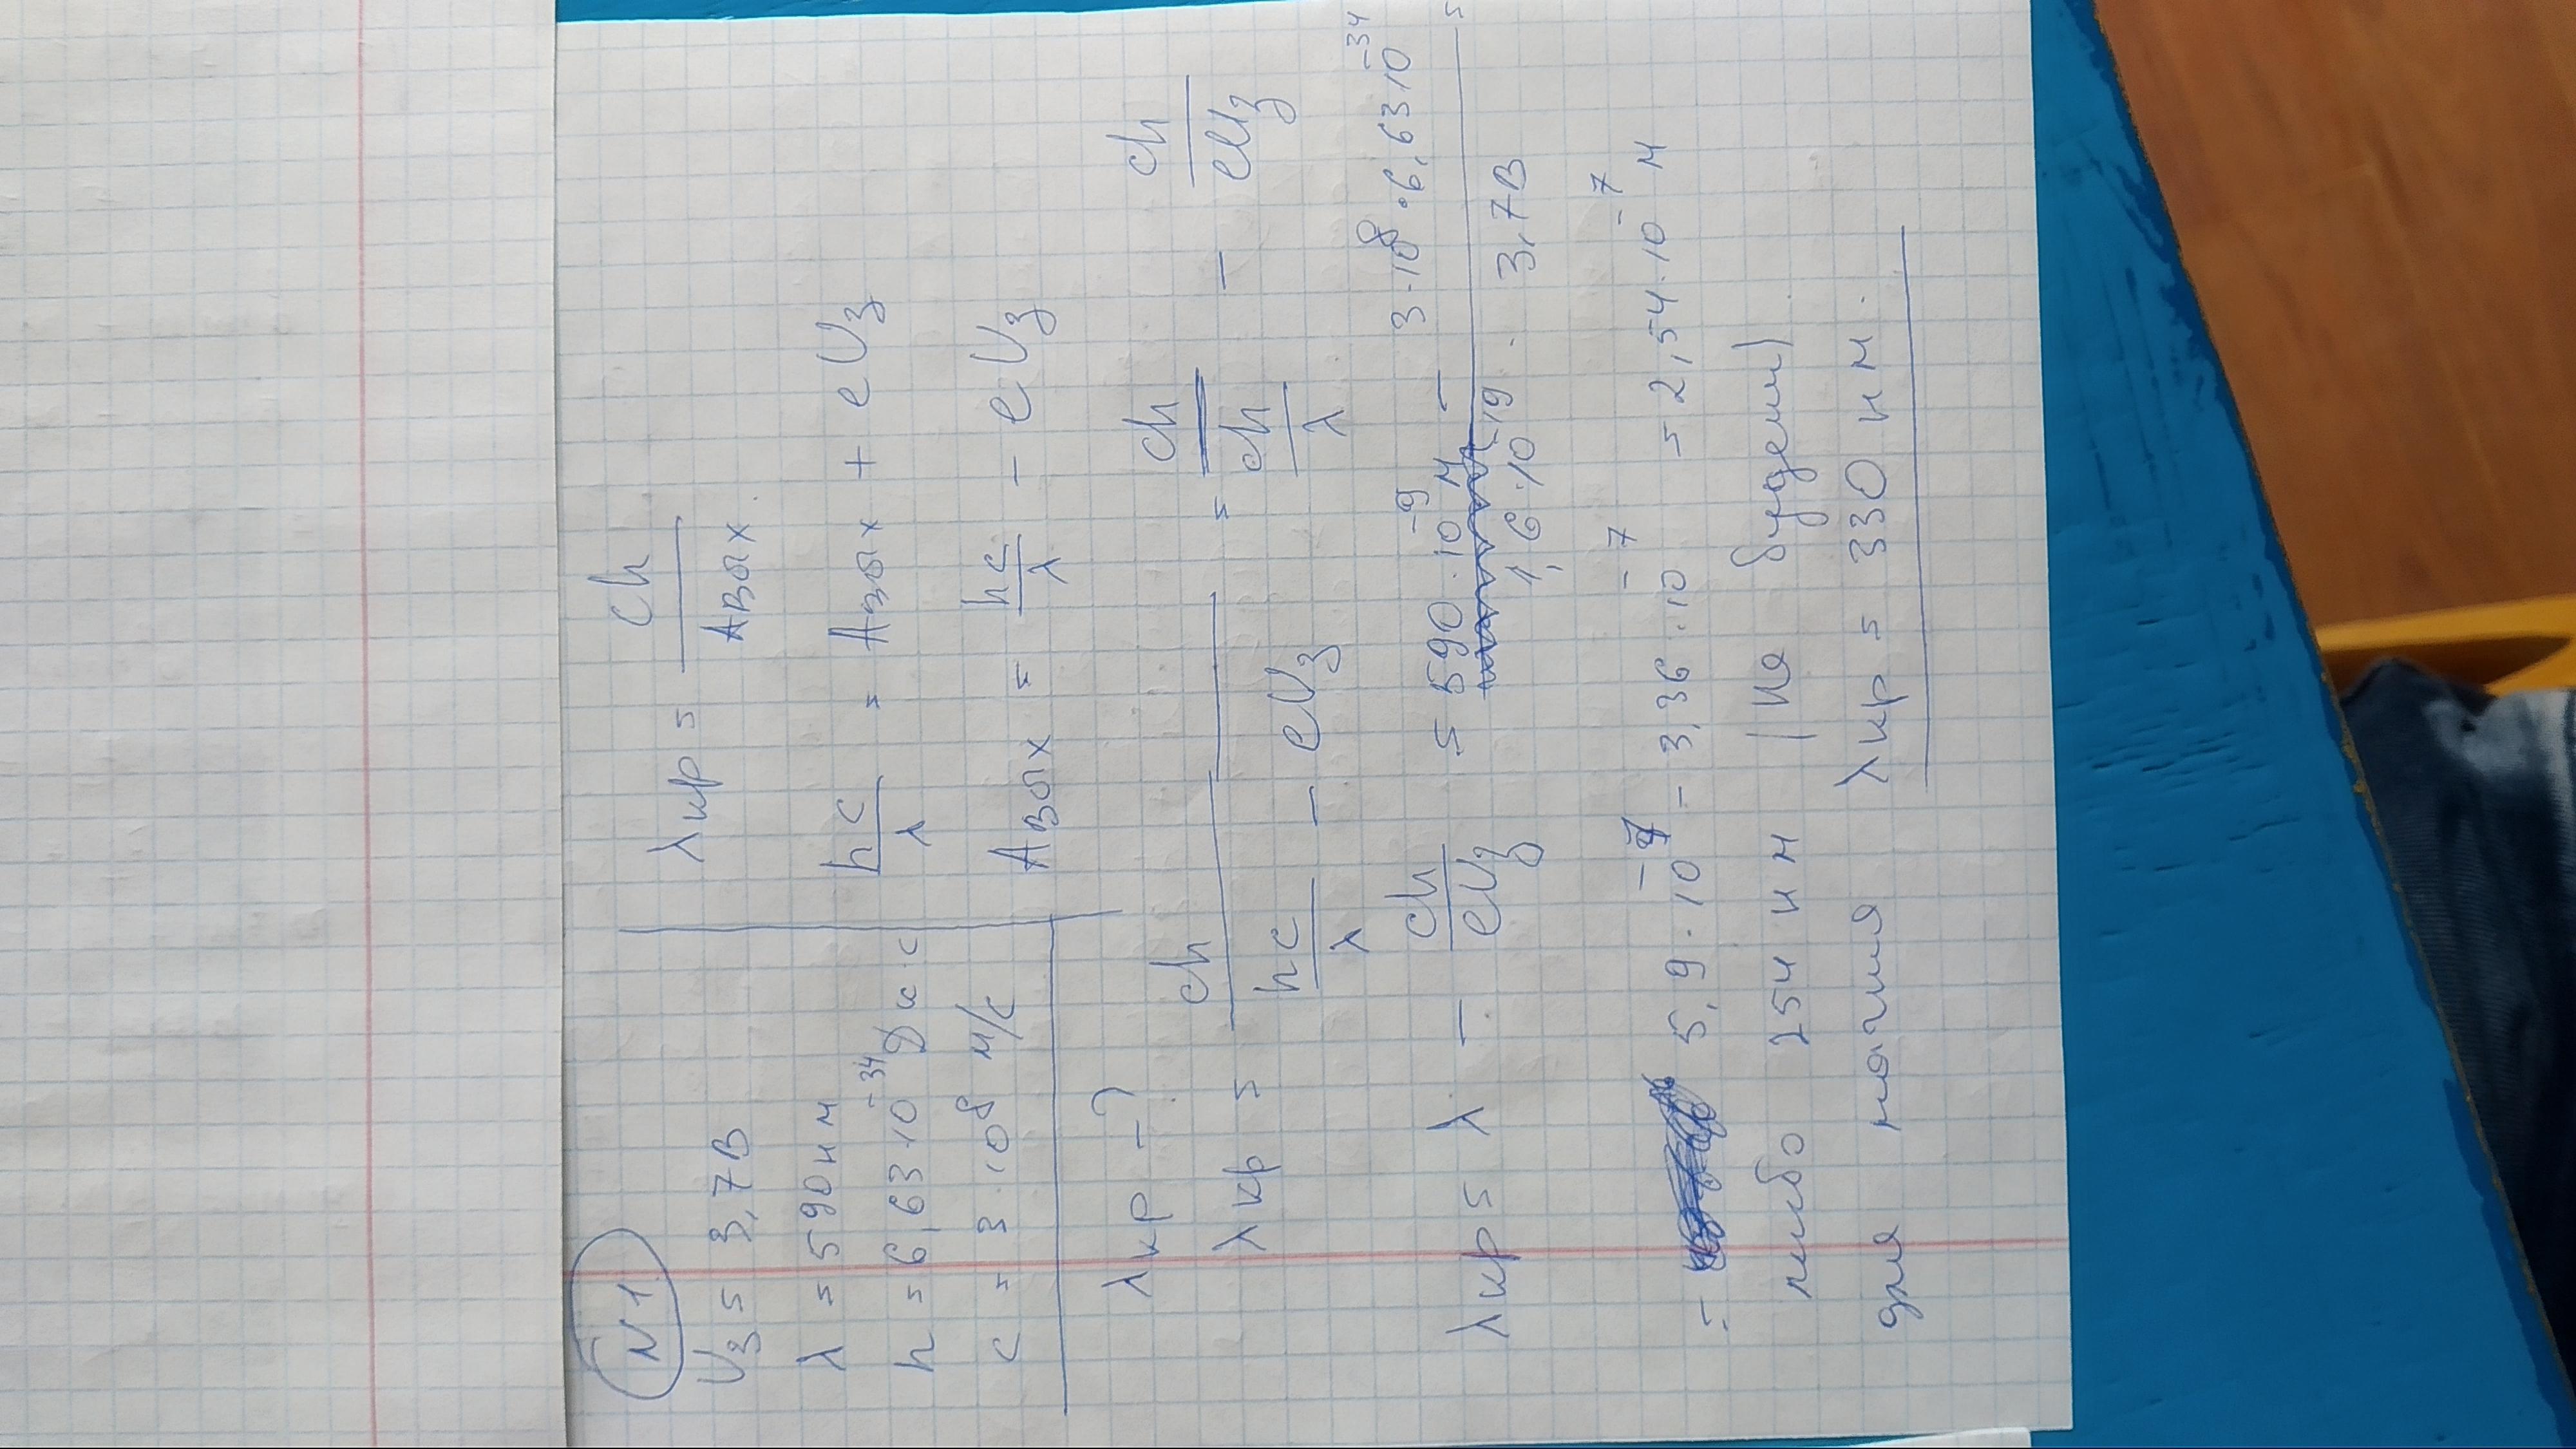 N1
Uз = 3,7В
λ = 590нм
h = 6,63·10⁻³⁴ Дж·с
c = 3·10⁸ м/с
λкр - ?
λкр = ch / Aвых.
hc/λ = Aвых + eUз
Aвых = hc/λ - eUз
λкр = ch / (hc/λ - eUз) = ch / (ch/λ) - ch/eUз
λкр = λ - ch/eUз = 590·10⁻⁹ м - 3·10⁸·6,63·10⁻³⁴ / 1,6·10⁻¹⁹·3,7В =
= 5,9·10⁻⁷ - 3,36·10⁻⁷ = 2,54·10⁻⁷ м
либо 254 нм
для магния λкр = 330 нм.